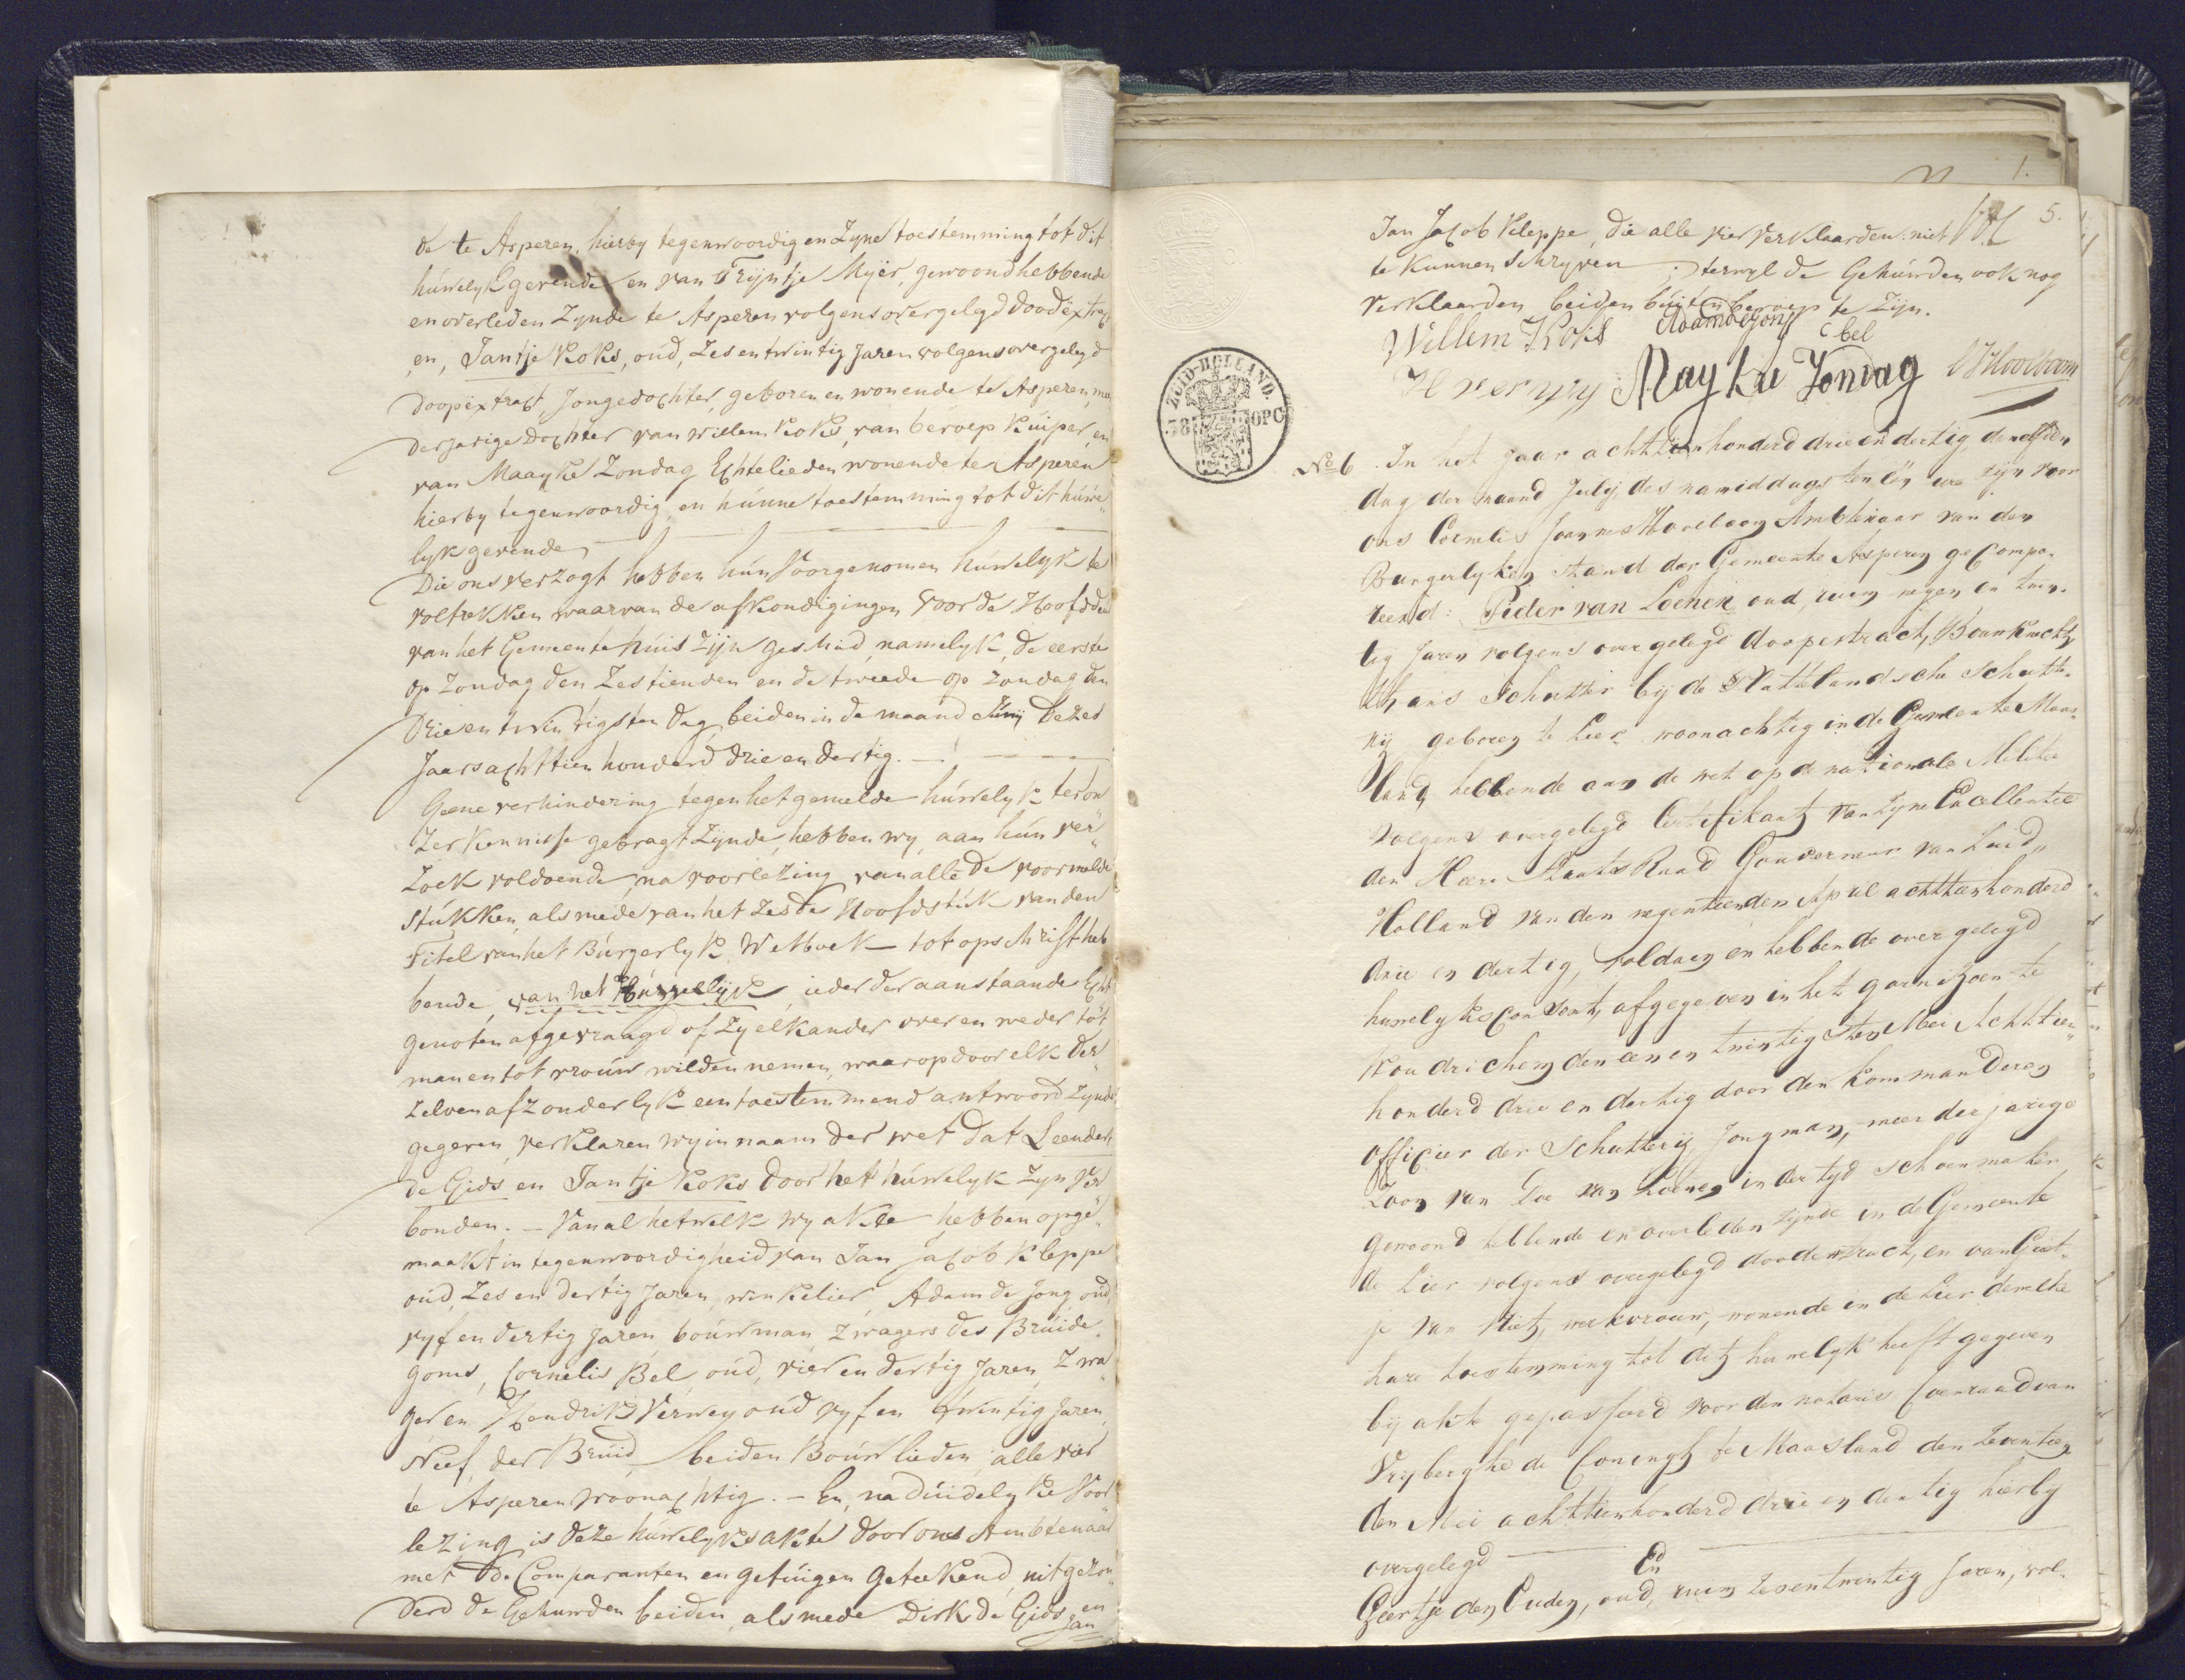 de te Asperen, hierby tegenwoordig en Zyne toestemming tot dit
húwelyk gevende en van Trijntje Myër, gewoond hebbende
en overleden Zynde te Asperen volgens overgelegd doodextract
en, Jantje Koks, oúd, Zes en twintig Jaren volgens overgelegd
doopextract, Jongedochter, geboren en wonende te Asperen, mee
derjarige dochter van Willem Koks, van beroep Kúiper, en
van Maayke Zondag Echtelieden wonende te Asperen
hierby tegenwoordig, en húnne toestemming tot dit húwe„
lyk gevende,
Die ons verzogt hebben hún Voorgenomen húwelyk te
voltrekken waarvan de afkondigingen voor de Hoofdde
van het Gemeente húis Zijn geschied, namelyk, de eerste
op Zondag den Zestienden en de tweede op Zondag den
Drie en twintigsten dag, beiden in de maand Junij dezes
Jaars achttien honderd drie en dertig. —
Geene verhindering tegen het gemelde húwelyk ter on
zer kennisse gebragt Zynde, hebben wy, aan hún ver„
zoek voldoende, na voorlezing van alle de voormelde
stúkken, als mede van het Zesde Hoofdstúk van den
Titel van het Búrgerlyk Wetboek — tot opschrift heb
bende, van het Húwelijk, ieder der aanstaande Echt
genoten afgevraagd of Zy elkander over en weder tot
man en tot vroúw wilden nemen, waarop door elk der„
zelven afzonderlyk een toestemmend antwoord Zynde
gegeven, verklaren wy in naam der wet dat Leendert
de Gids en Jantje Koks door het húwelyk Zyn ver„
bonden. — Van al hetwelk wy akte hebben opge„
maakt in tegenwoordigheid van Jan Jacob Kleppe
oúd, Zes en dertig Jaren, winkelier, Adam de Jong oúd,
vyf en dertig Jaren boúwman Zwagers des Brúide„
goms, Cornelis Bel, oúd, vier en dertig Jaren, Zwa„
ger en Hendrik Verwey oúd vyf en twintig Jaren,
Neef der Brúid, beiden Boúwlieden, alle vier
te Asperen woonachtig. — En, na dúidelyke Voor„
lezing is deze húwelyksakte door ons Ambtenaar
met de Comparanten en getúigen geteekend, uitgezon„
derd de Gehuwden beiden, alsmede Dirk de Gids en
Jan
5.
Jan Jacob Kleppe, die alle vier verklaarden niet
te kunnen schryven; terwyl de Gehúwden ook nog
verklaarden beiden búiten beroep te Zijn.
Willem Koks Adam de Jong C bel
H verwy Mayke Zondag CJ Hoolboom
ZUID-HOLLAND.
No 6 In het jaar achttienhonderd drie en dertig, den elfden
dag der maand Julij des namiddags ten één ure zijn voor
ons Cornelis Joannes Hoolboom Ambtenaar van den
Burgerlyken stand der Gemeente Asperen gecompa„
reerd: Pieter van Loenen oud, ruim negen en twin„
tig Jaren volgens overgelegd doopextract, Bouwknecht,
thans Schutter bij de Matelandsche Schutte„
rij geboren te Lier woonachtig in de Gemeente Maas„
land, hebbende aan de wet op de nationale Militie
volgens overgelegd Certifikaat van Zyne Excellentie
den Heere Staats Raad Gouverneur van Zuid„
Holland van den negentienden April achttienhonderd
drie en dertig, voldaan en hebbende overgelegd
huwelyksconsent, afgegeven in het garnizoen te
Woudrichem den een en twintigsten Mei Achttien„
honderd drie en dertig door den kommanderen
officier der Schutterij Jongman, meerderjarige
Zoon van Doe van Loenen in der tyd schoenmaker
gewoond hebbende en overleden zijnde in de Gemeente
de Lier volgens overgelegd doodextract, en van Geert„
je van Vliet, werkvrouw, wonende in de Lier dewelke
hare toestemming tot dit huwelyk heeft gegeven
bij akte gepasseerd voor den notaris Coenraad van
Vryberghe de Coningh te Maasland den Zeventien
den Mei achttienhonderd drie en dertig hierby
overgelegd — En —
Geertje den Ouden, oud, ruim Zesentwintig Jaren, vol„